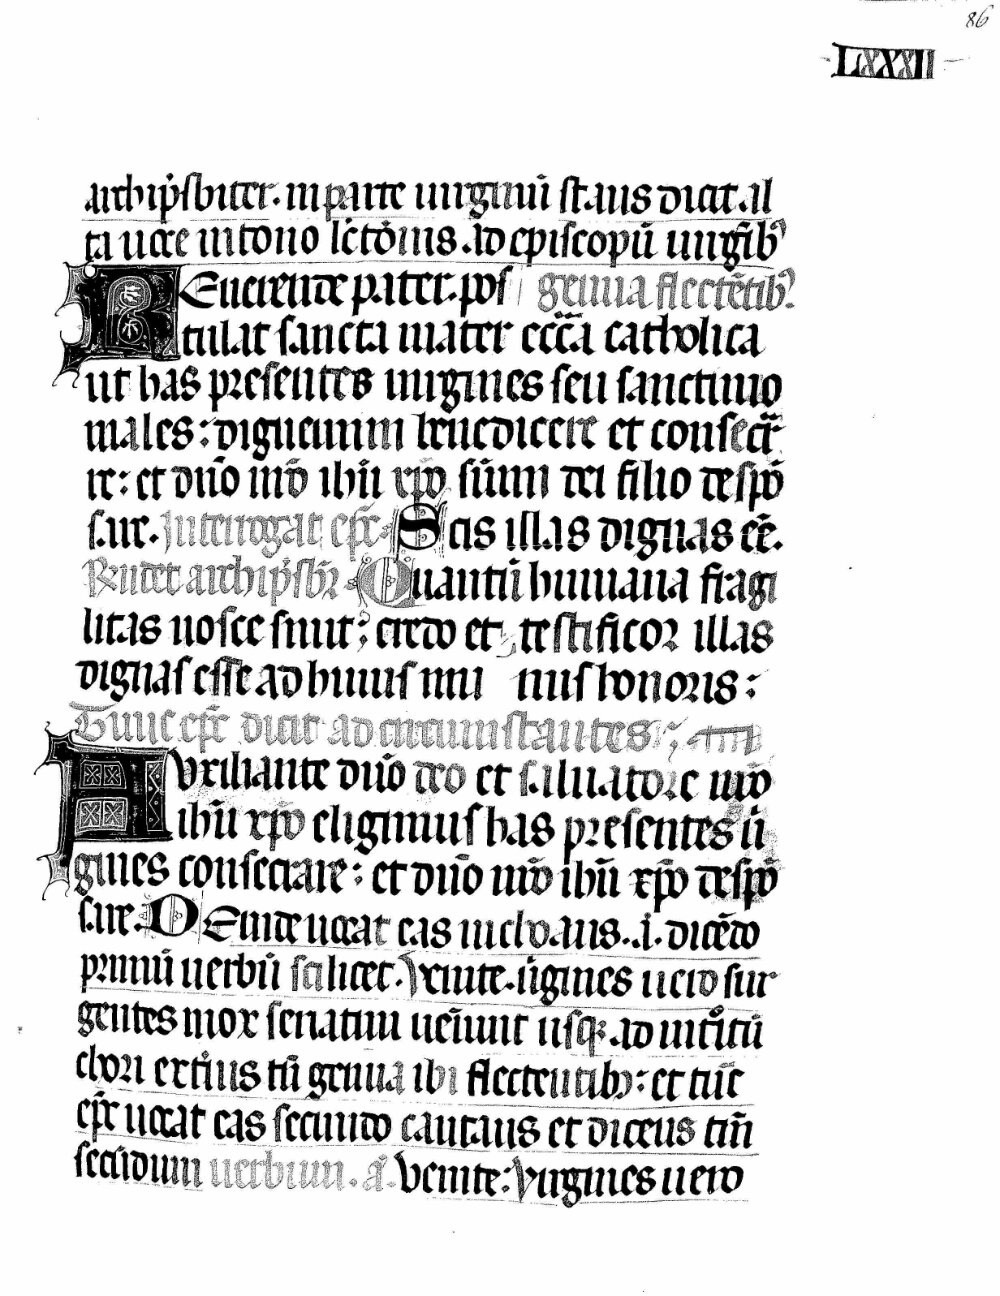 86
LXXXII
archip̄sbiter. in parte uirginū stans dicat. al
ta uoce in tono lc̄tōnis. ad episcopū uirgīb9
Euerende pater. pos genua flectētib9.
R tulat sancta mater ecc̄a catholica
ut has presentes uirgines seu sanctimo
niales: dignemini benedicere et consecr̄a
re: et dn̄o nr̄o ihū xp̄o sūmi dei filio despō
sare. Interrogat ep̄c. Scis illas dignas eē.
Rn̄det archip̄sbr̄. Quantū humana fragi
litas nosce sinit; credo et testificor illas
dignas esse ad huius mu nus honoris:
Tunc ep̄c dicit ad circumstantes;
Auxiliante dn̄o deo et saluatore nr̄o
ihū xp̄o eligimus has presentes ūi
gines consecrare: et dn̄o nr̄o ihū xp̄o despō
sare. Deinde uocat eas inclo. ans. i. dicēdo
primū uerbū scilicet. Venite. ūgines uero sur
gentes mox senatim ueīunt usq; ad introitū
chori exteri9 tn̄ genua ibi flectentib9: et tūc
ep̄c uocat eas secundo cantans et dicens tm̄
secūdum uerbum. a. Venite: Virgines uero